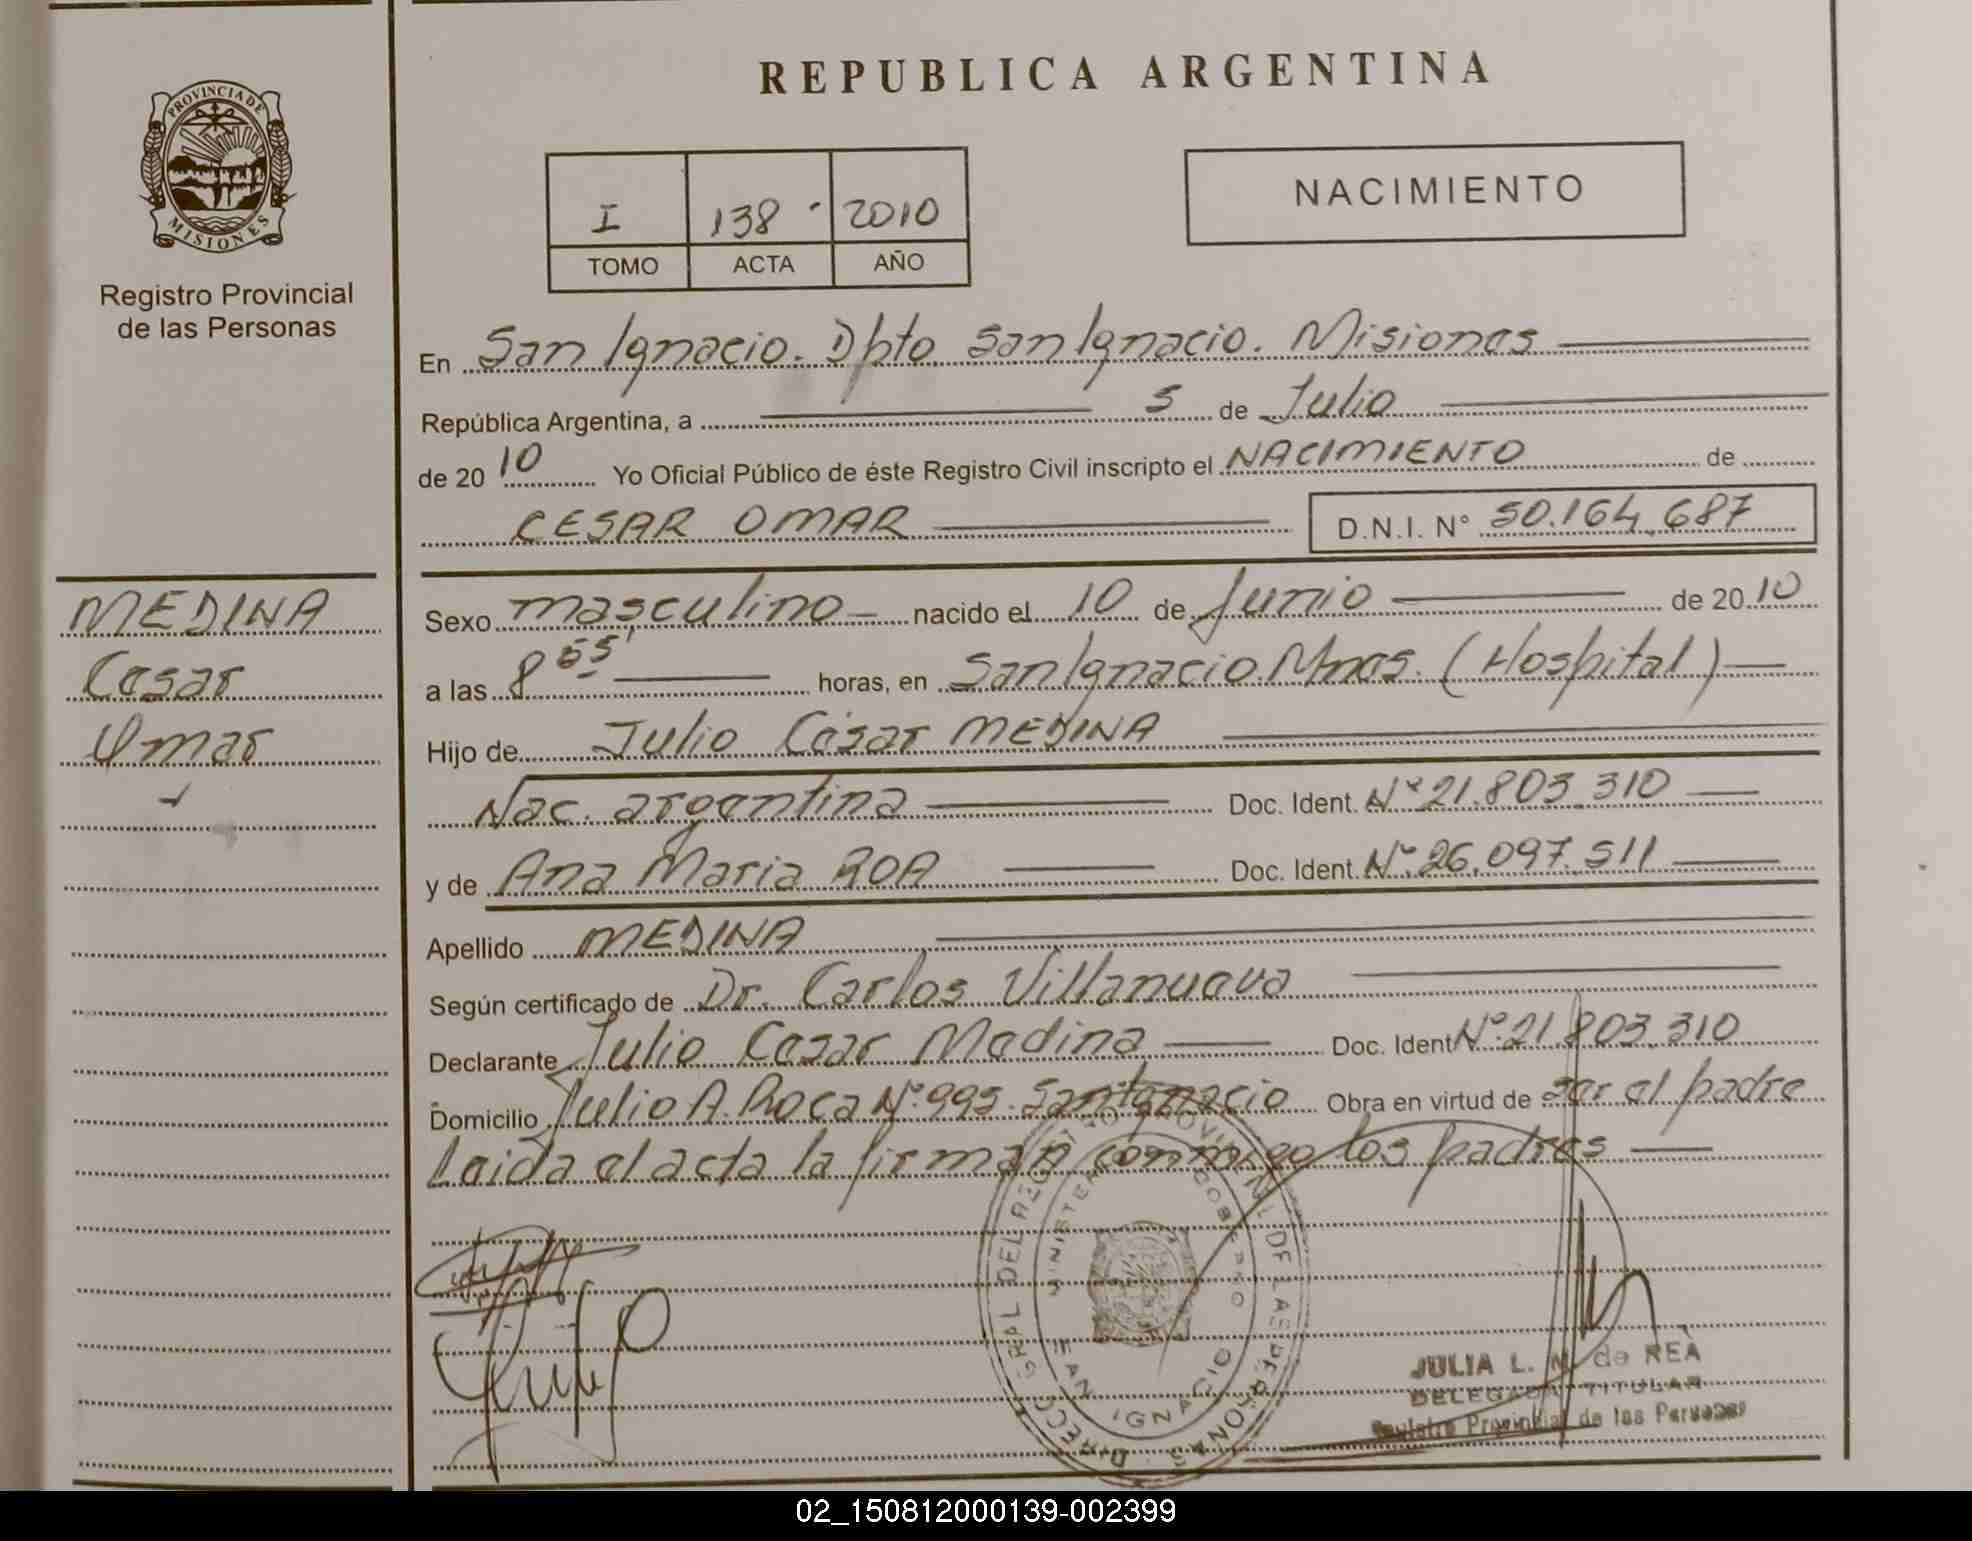 REPUBLICA ARGENTINA
PROVINCIA DE
MISIONES
Registro Provincial
de las Personas
I 138 · 2010
TOMO ACTA AÑO
NACIMIENTO
En San Ignacio. Dpto San Ignacio. Misiones
República Argentina, a 5 de Julio
de 2010 Yo Oficial Público de éste Registro Civil inscripto el NACIMIENTO de
CESAR OMAR D.N.I. N° 50.164.687
MEDINA
Cesar
Omar
Sexo masculino nacido el 10 de Junio de 2010
a las 8 55' horas, en San Ignacio. Mnes. (Hospital)
Hijo de Julio César MEDINA
Nac. argentina Doc. Ident. N° 21.803.310
y de Ana Maria ROA Doc. Ident. N° 26.097.511
Apellido MEDINA
Según certificado de Dr. Carlos Villanueva
Declarante Julio Cesar Medina Doc. Ident N° 21.803.310
Domicilio Julio A. Roca N° 995. San Ignacio Obra en virtud de ser el padre
Leida el acta la firman conmigo los padres
DIRECC GRAL DEL REGISTRO PROVINCIAL DE LAS PERSONAS
MINISTERIO GOBIERNO
SAN IGNACIO
JULIA L. N. de REA
DELEGADA TITULAR
Registro Provincial de las Personas
02_150812000139-002399